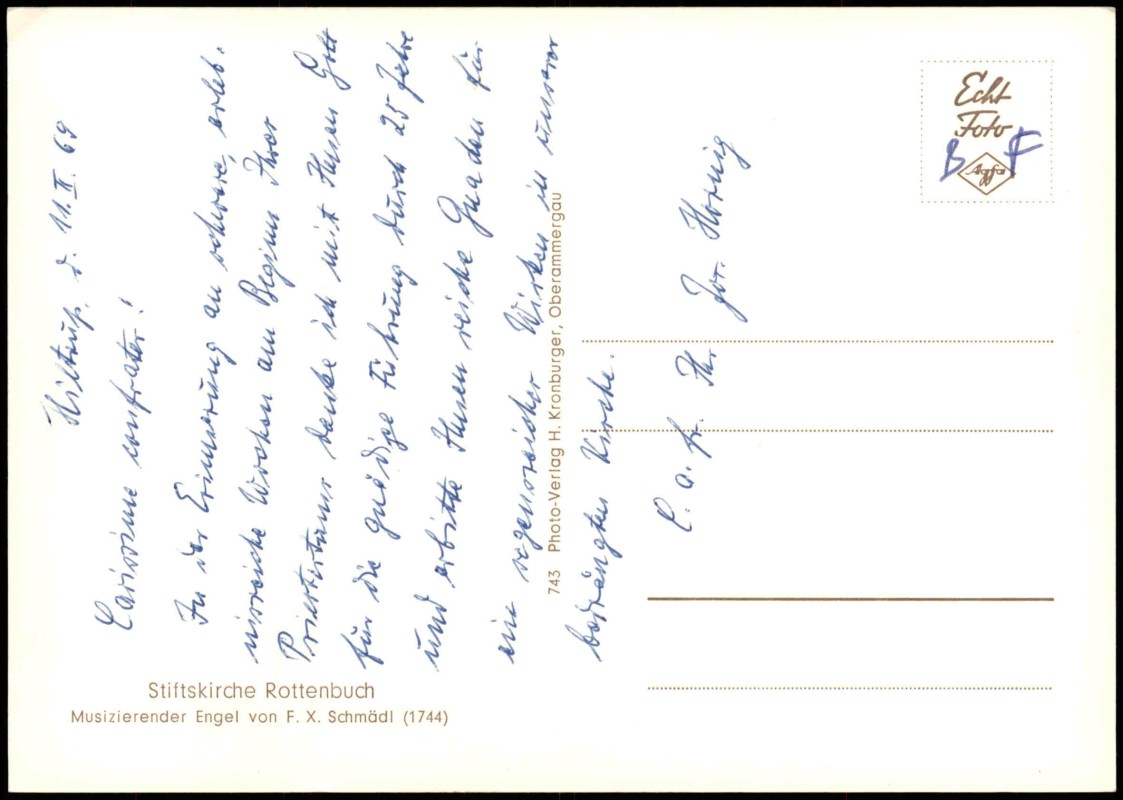 Hiltrup, d. 11. II. 69
Carissime confrater!
In der Erinnerung an schwere, erleb-
nisreiche Wochen am Beginn Ihres
Priestertums danke ich mit Ihnen Gott
für die gnädige Führung durch 25 Jahre
und erbitte Ihnen reiche Gnaden für
ein segensreiches Wirken in unserer
bedrängten Kirche.
C. a. fr. Ihr Jos. Hornig
Echt
Foto
B F
Agfa
743 Photo-Verlag H. Kronburger, Oberammergau
Stiftskirche Rottenbuch
Musizierender Engel von F. X. Schmädl (1744)